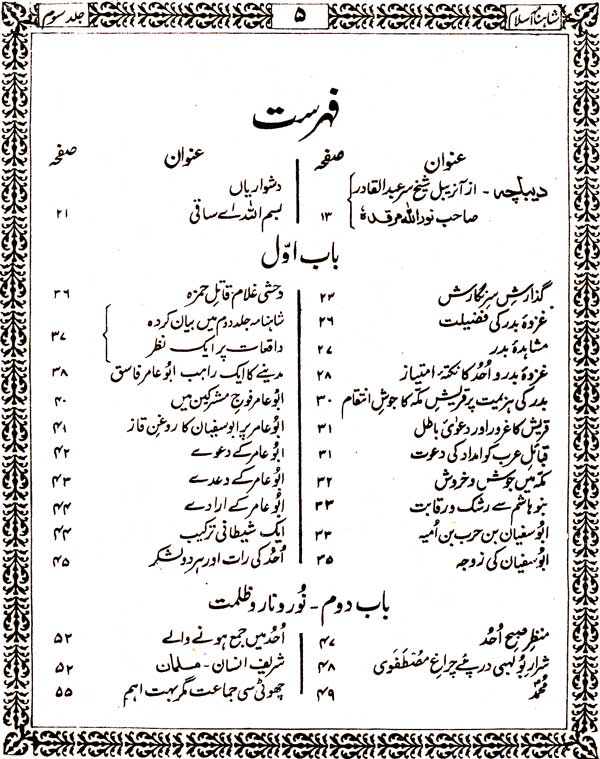 شاہنامۂ اسلام
۵
جلد سوم
فہرست
عنوان
صفحہ
دیباچہ - از آنریبل شیخ سر عبدالقادر
صاحب نور اللہ مرقدہٗ ۱۳
عنوان
صفحہ
دشواریاں
بسم اللہ اے ساقی ۲۱
باب اوّل
گذارشِ سرنگارش ۲۳
غزوۂ بدر کی فضیلت ۲۶
مشاہدۂ بدر ۲۷
غزوۂ بدر و اُحُد کا نکتۂ امتیاز ۲۸
بدر کی ہزیمت پر قریشِ مکّہ کا جوشِ انتقام ۳۰
قریش کا غرور اور دعوائے باطل ۳۱
قبائلِ عرب کو امداد کی دعوت ۳۱
مکّہ میں جوش و خروش ۳۲
بنو ہاشم سے رشک و رقابت ۳۳
ابوسفیان بن حرب بن اُمیہ ۳۳
ابُوسفیان کی زوجہ ۳۵
وحشی غلام قاتلِ حمزہ ۳۶
شاہنامہ جلد دوم میں بیان کردہ
واقعات پر ایک نظر ۳۷
مدینے کا ایک راہب ابُو عامر فاسق ۳۸
ابُو عامر فوجِ مشرکین میں ۴۰
ابُو عامر پر ابوسفیان کا روغنِ قاز ۴۱
ابُو عامر کے دعوے ۴۲
ابُو عامر کے وعدے ۴۳
ابُو عامر کے ارادے ۴۴
ایک شیطانی ترکیب ۴۴
اُحُد کی رات اور ہر دو لشکر ۴۵
باب دوم - نُور و نار و ظلمت
منظرِ صبحِ اُحُد ۴۷
شرارِ بُولہبی درپئے چراغِ مُصْطَفَوِی ۴۸
مُحَمَّدؐ ۴۹
اُحُد میں جمع ہونے والے ۵۲
شریف انسان - مسلمان ۵۲
چھوٹی سی جماعت مگر بہت اہم ۵۵